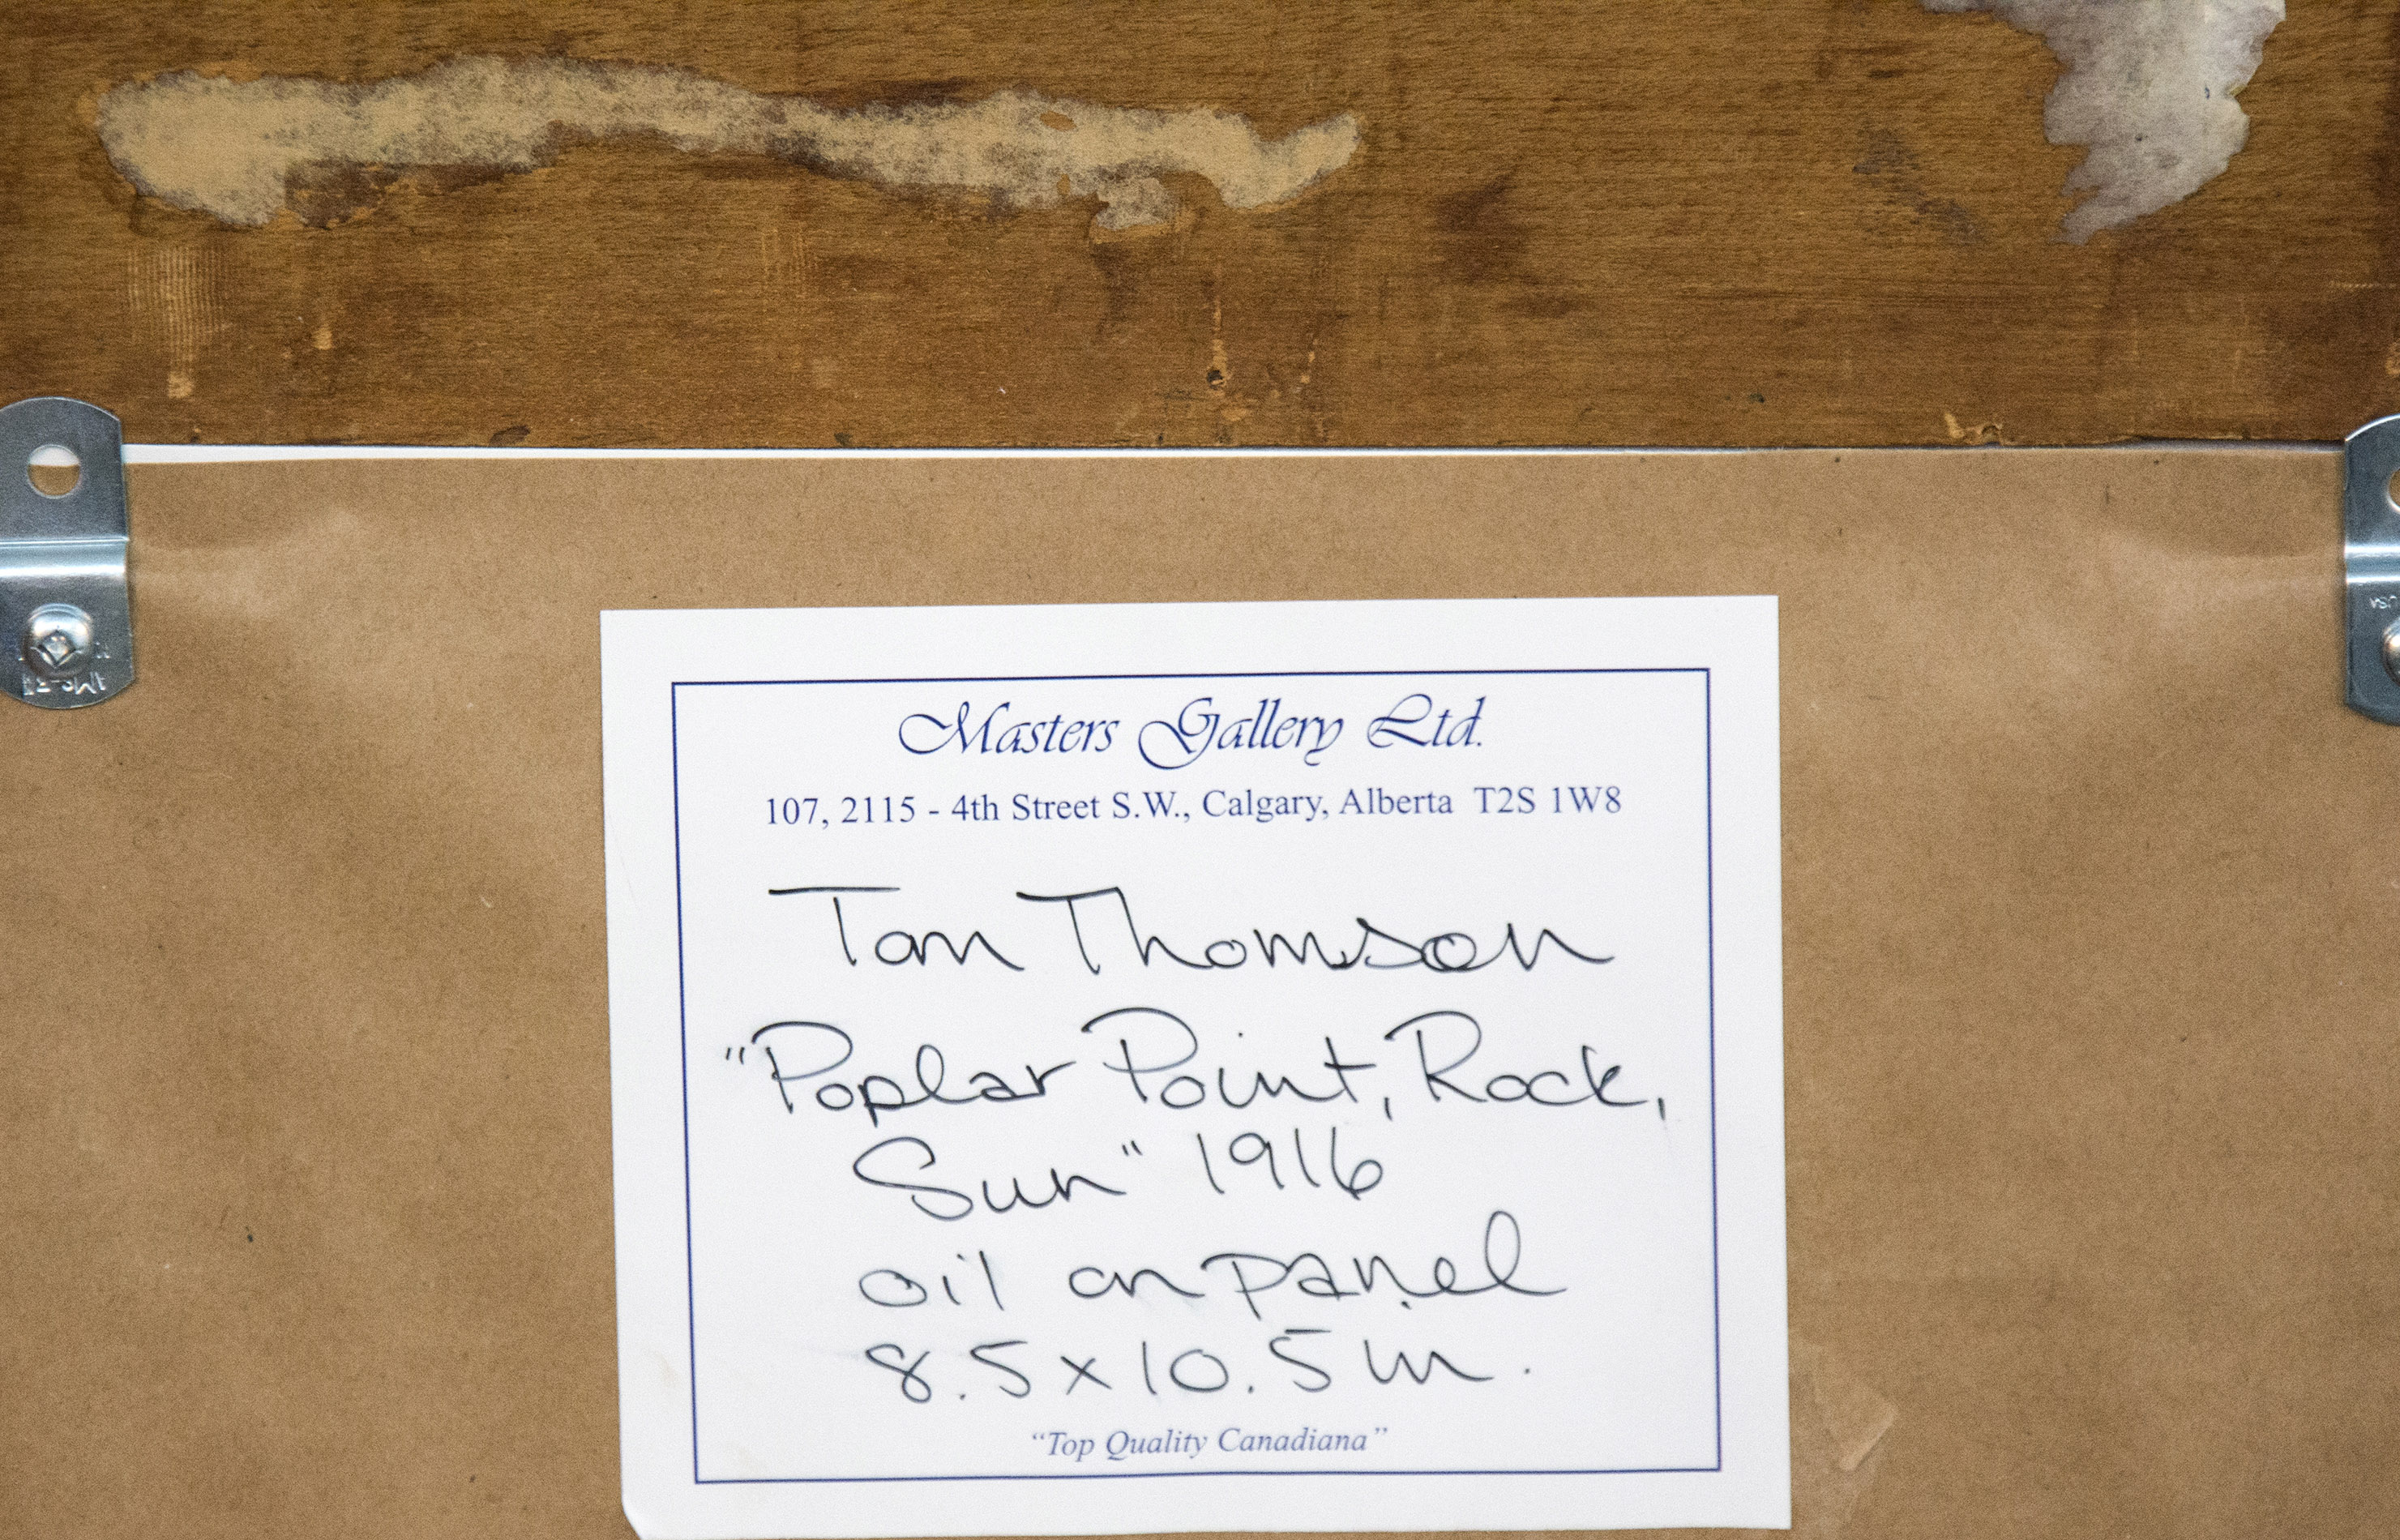 Masters Gallery Ltd.
107, 2115 - 4th Street S.W., Calgary, Alberta T2S 1W8
Tom Thomson
"Poplar Point, Rock,
Sun" 1916
oil on panel
8.5 x 10.5 in.
"Top Quality Canadiana"
USA